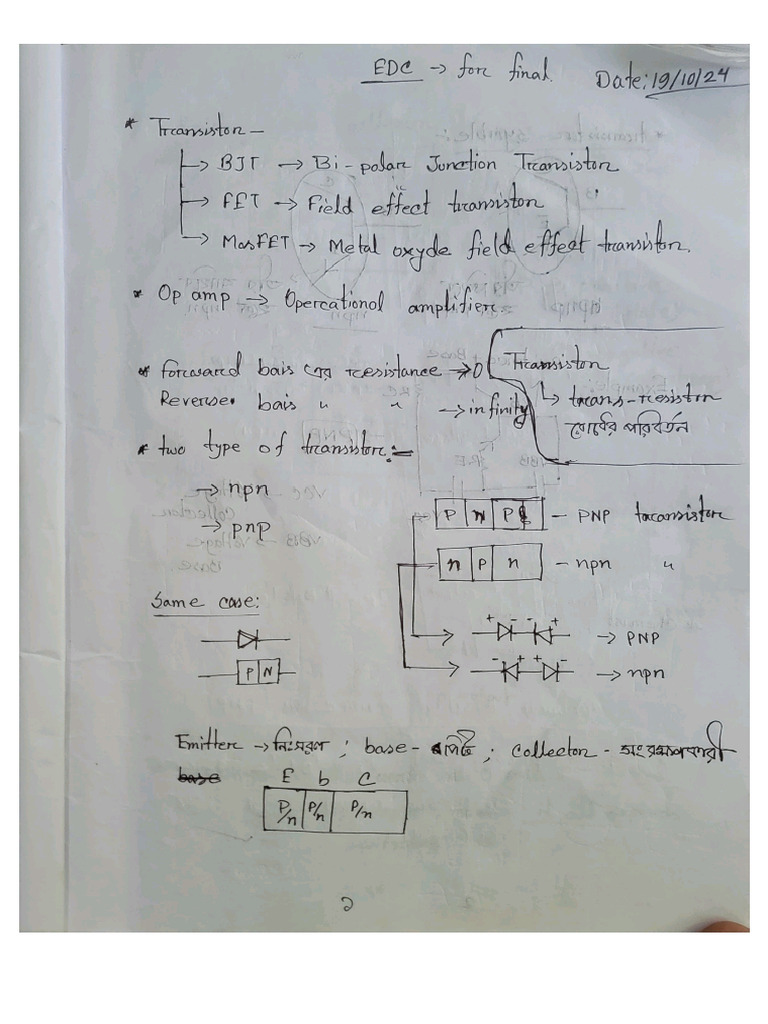 EDC → for final.
Date: 19/10/24
* Transistor —
→ BJT → Bi-polar Junction Transistor
→ FET → Field effect transistor
→ MosFET → Metal oxyde field effect transistor.
* Op amp → Operational amplifier.
* forward bais এর resistance → 0
Reverse. bais " " → infinity
Transistor
↳ trans-resistor
রোধের পরিবর্তন
* two type of transistor:-
→ npn
→ pnp
P N P — PNP transistor
n P n — npn "
Same case:
P N
+ - - + → PNP
- + + - → npn
Emitter → নিঃসরণ ; base - পিঠ ; collector -
base E b C
P/n P/n P/n
১